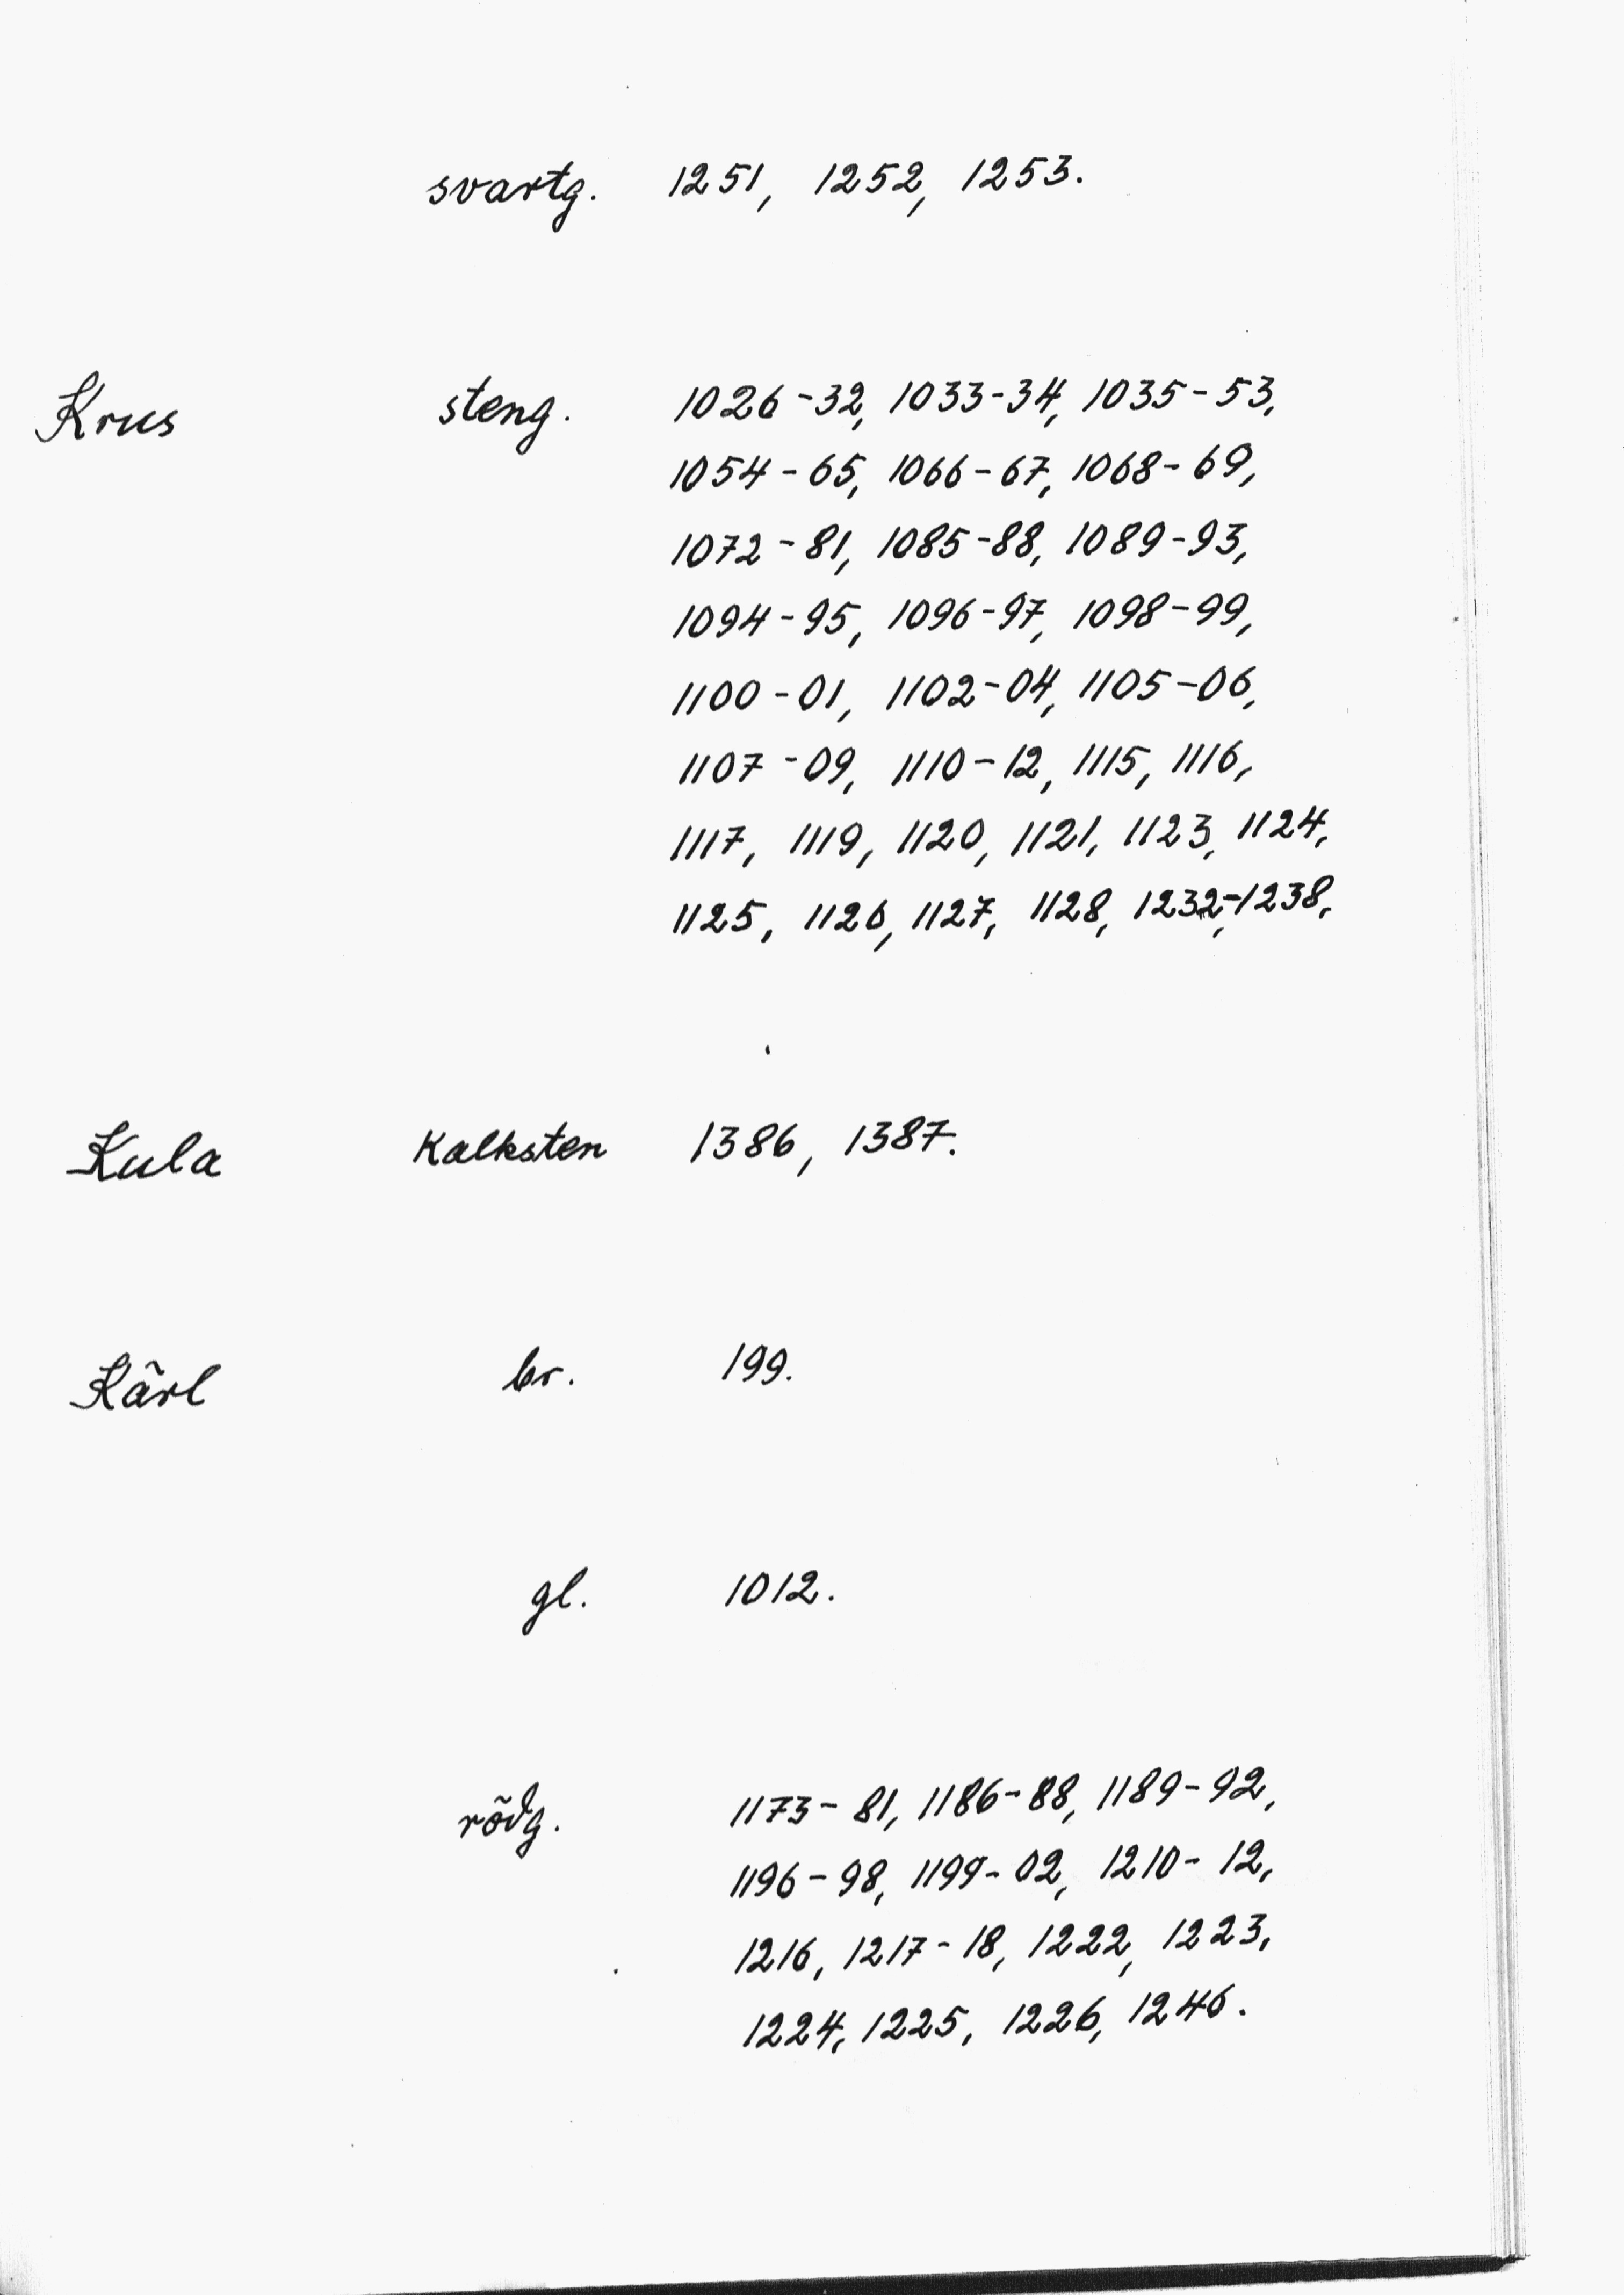 svartg. 1251, 1252, 1253.
Krus steng. 1026-32, 1033-34, 1035-53,
1054-65, 1066-67, 1068-69,
1072-81, 1085-88, 1089-93,
1094-95, 1096-97, 1098-99,
1100-01, 1102-04, 1105-06,
1107-09, 1110-12, 1115, 1116,
1117, 1119, 1120, 1121, 1123, 1124,
1125, 1126, 1127, 1128, 1232,-1238,
Kula Kalksten 1386, 1387.
Kärl br. 199.
gl. 1012.
rödg. 1173-81, 1186-88, 1189-92,
1196-98, 1199-02, 1210-12,
1216, 1217-18, 1222, 1223,
1224, 1225, 1226, 1246.